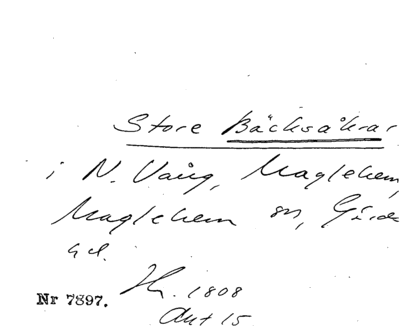 Store Bäcksåkrar
i N. Vång, Maglehem,
Maglehem sn, Gärds
hd.
Hr. 1808
Akt 15
Nr 7897.